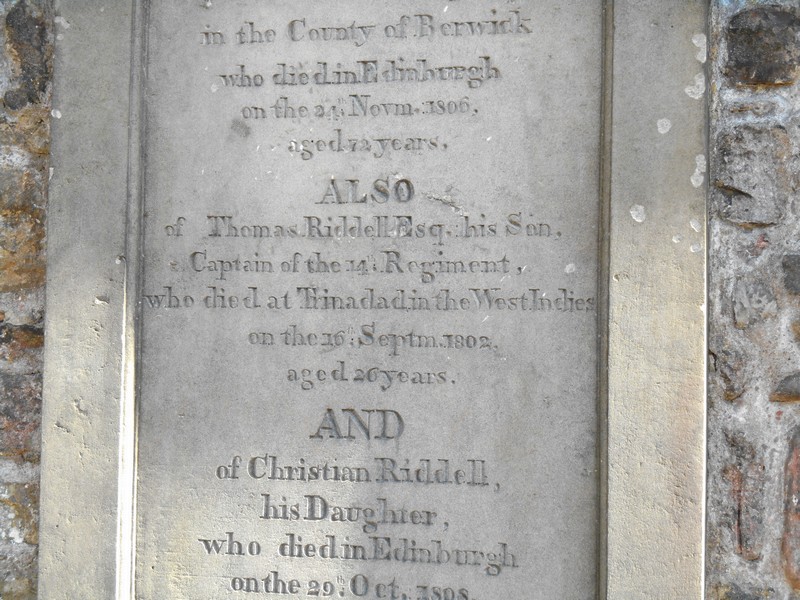 in the County of Berwick
who died in Edinburgh
on the 24th Novm. 1806,
aged 72 years.
ALSO
of Thomas Riddell Esq. his Son,
Captain of the 14th Regiment,
who died at Trinadad in the West Indies
on the 16th Septm. 1802,
aged 26 years.
AND
of Christian Riddell,
his Daughter,
who died in Edinburgh
on the 29th Oct. 1808,